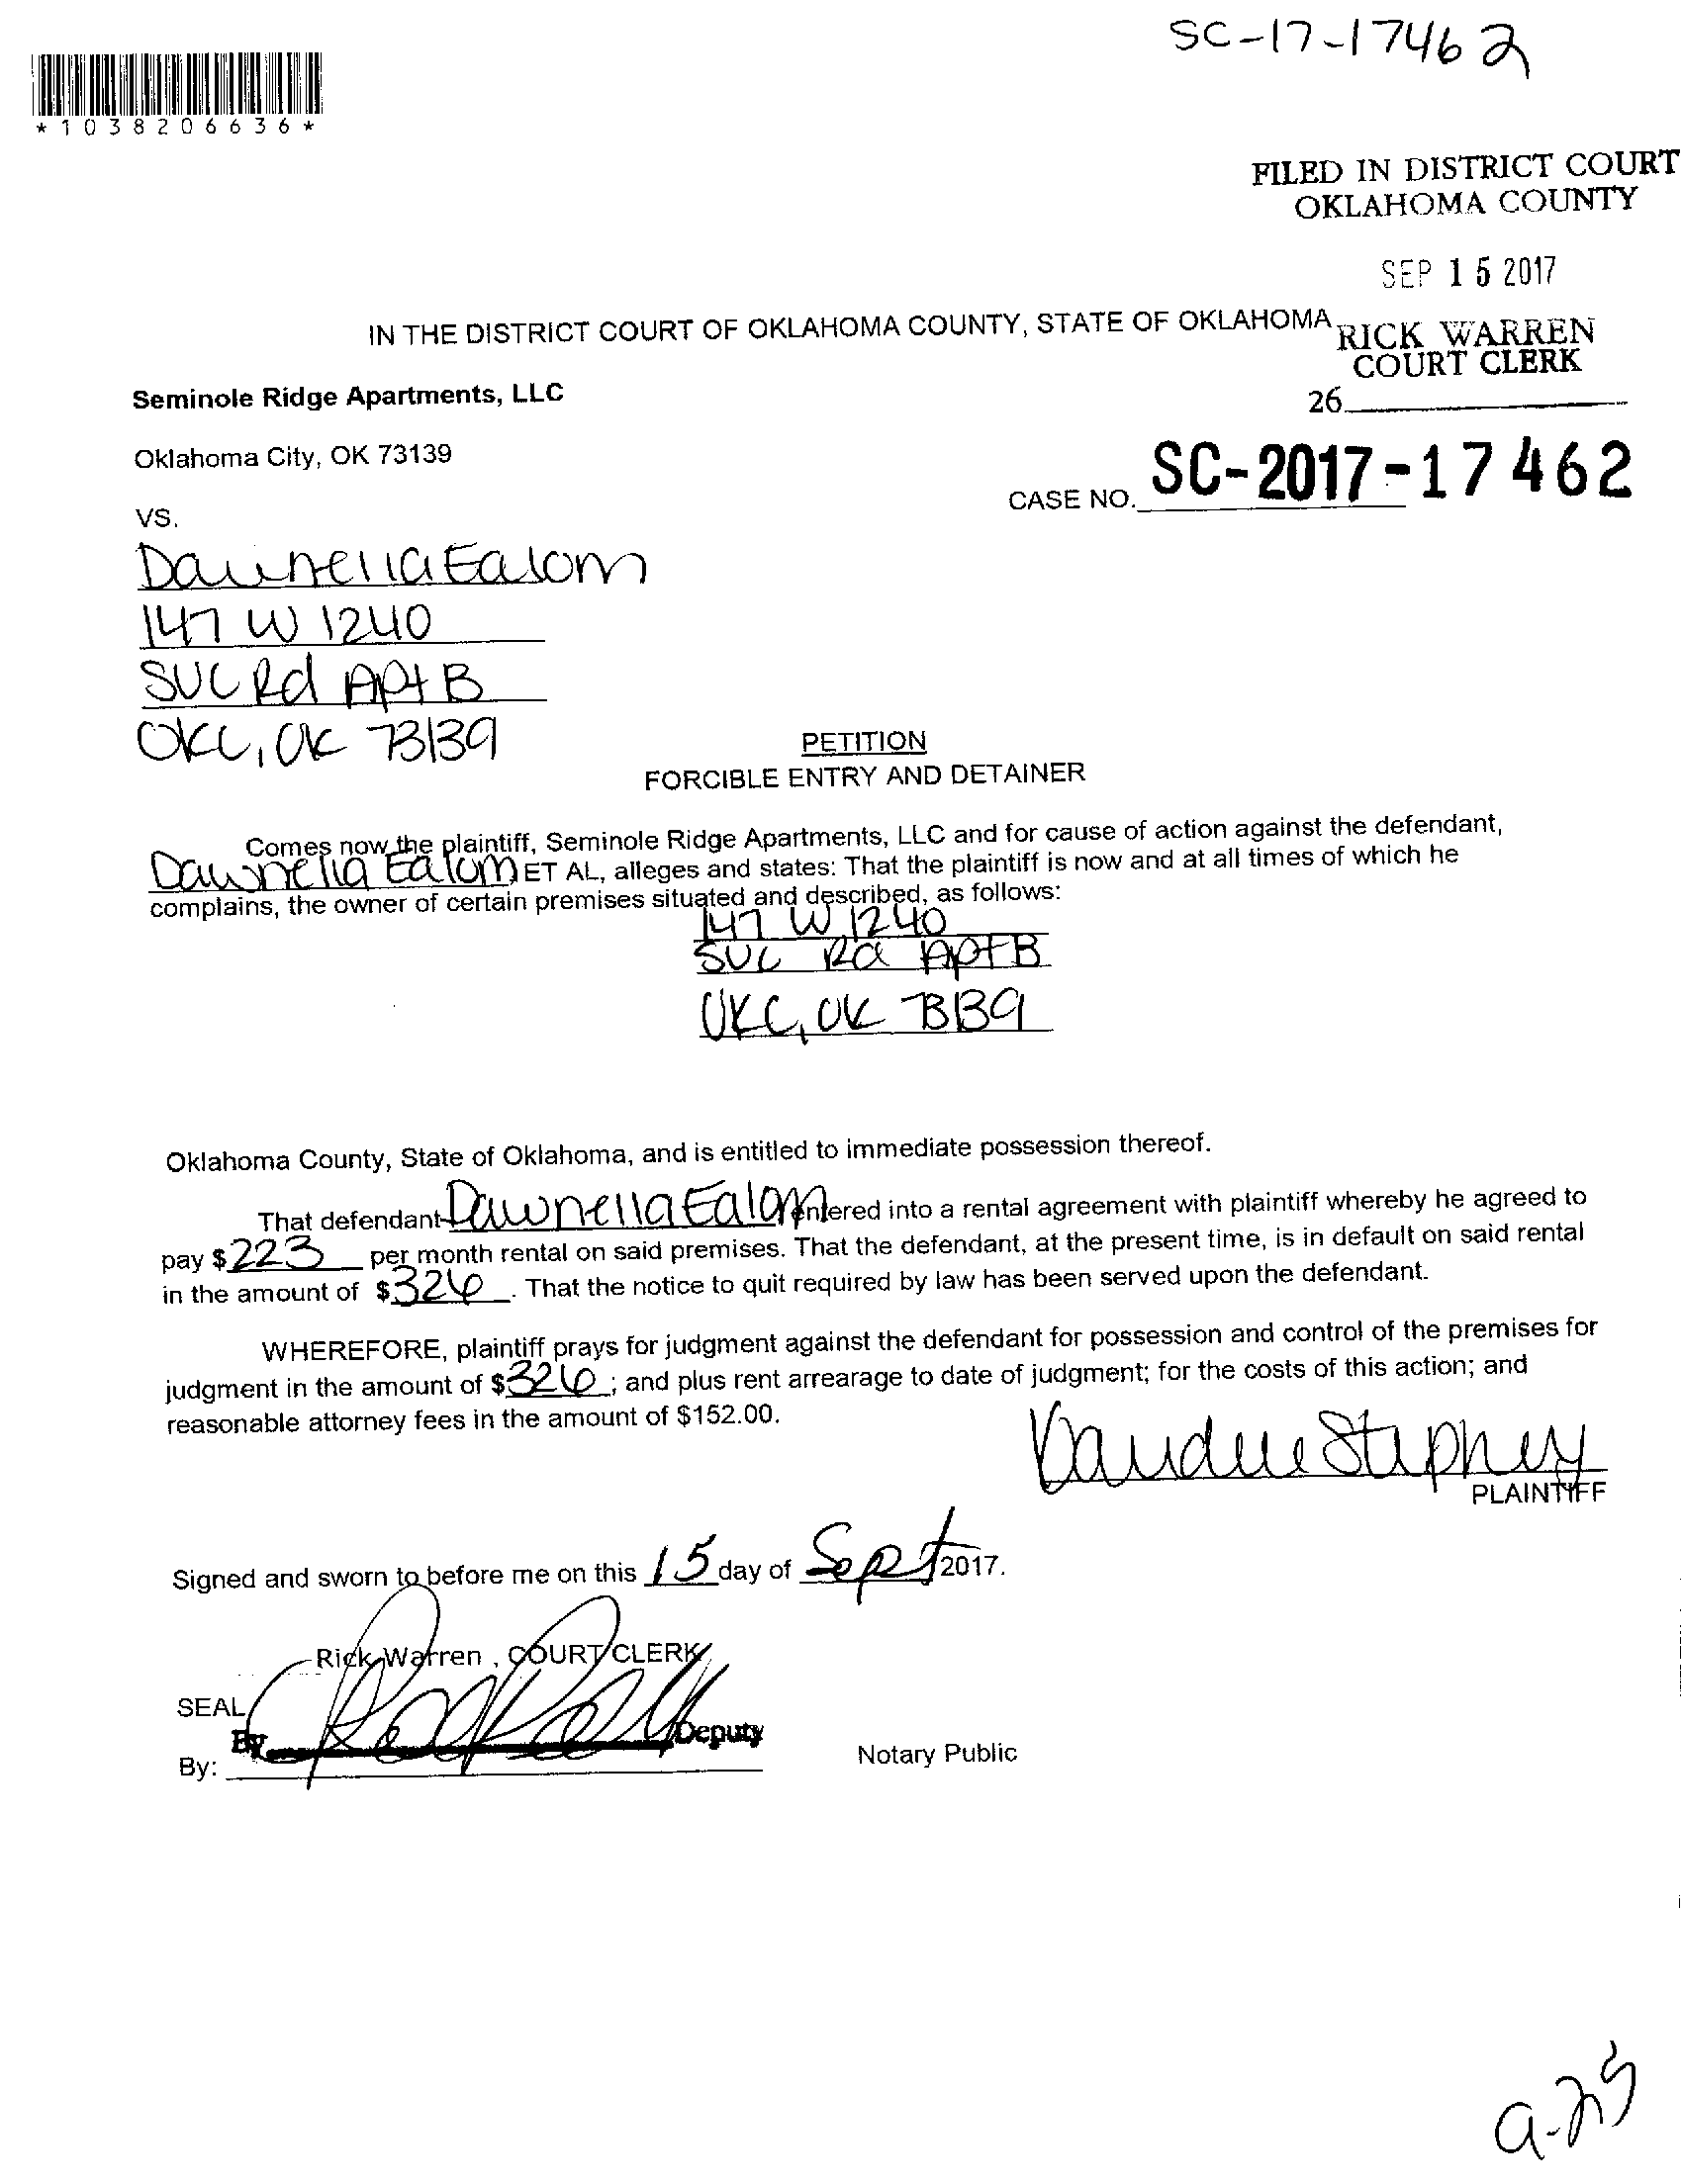 SC-17-17462
*1038206636*
FILED IN DISTRICT COURT
OKLAHOMA COUNTY
SEP 15 2017
IN THE DISTRICT COURT OF OKLAHOMA COUNTY, STATE OF OKLAHOMA
RICK WARREN
COURT CLERK
26
Seminole Ridge Apartments, LLC
Oklahoma City, OK 73139
CASE NO. SC-2017-17462
VS.
Dawnella Ealom
147 W 1240
SVC Rd Apt B
OKC, OK 73139
PETITION
FORCIBLE ENTRY AND DETAINER
Comes now the plaintiff, Seminole Ridge Apartments, LLC and for cause of action against the defendant,
Dawnella Ealom ET AL, alleges and states: That the plaintiff is now and at all times of which he
complains, the owner of certain premises situated and described, as follows:
147 W 1240
SVC Rd Apt B
OKC, OK 73139
Oklahoma County, State of Oklahoma, and is entitled to immediate possession thereof.
That defendant Dawnella Ealom entered into a rental agreement with plaintiff whereby he agreed to
pay $223 per month rental on said premises. That the defendant, at the present time, is in default on said rental
in the amount of $326. That the notice to quit required by law has been served upon the defendant.
WHEREFORE, plaintiff prays for judgment against the defendant for possession and control of the premises for
judgment in the amount of $326; and plus rent arrearage to date of judgment; for the costs of this action; and
reasonable attorney fees in the amount of $152.00.
PLAINTIFF
Signed and sworn to before me on this 15 day of Sept 2017.
Rick Warren, COURT CLERK
SEAL
By Deputy
By:
Notary Public
9-25